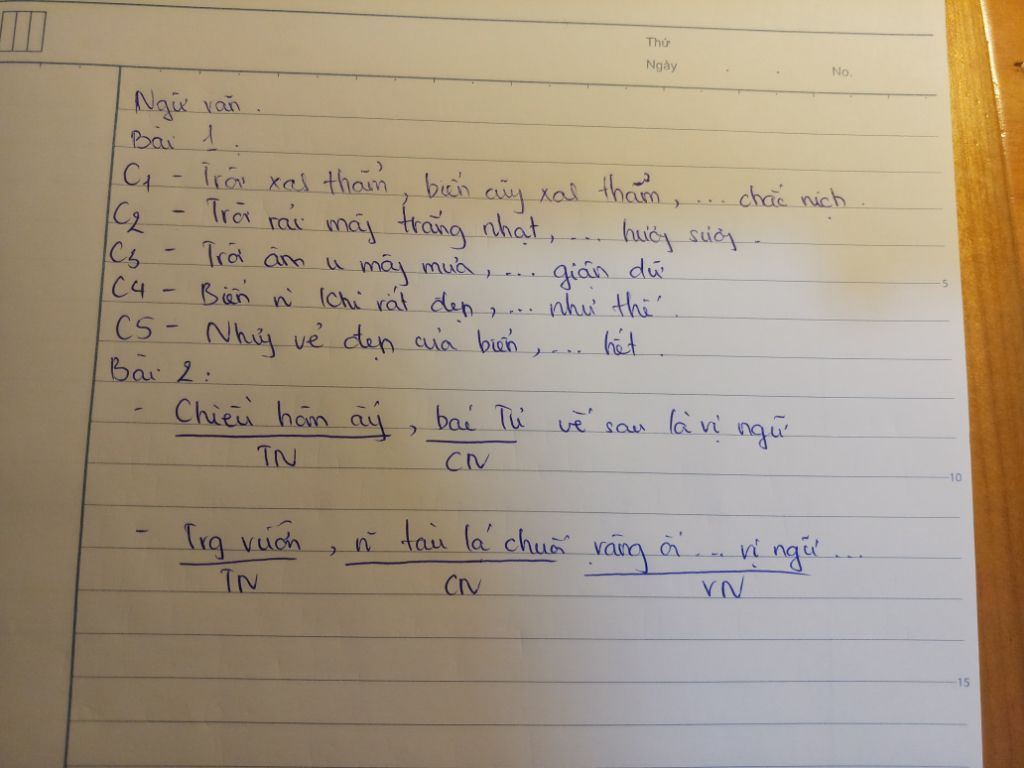 Thứ
Ngày . . No.
Ngữ văn.
Bài 1:
C1 - Trời xanh thẳm, biển cũng xanh thẳm, ... chắc nịch.
C2 - Trời rải mây trắng nhạt, ... hương sương.
C3 - Trời âm u mây mưa, ... giận dữ
C4 - Biển n` khi rất đẹp, ... như thế.
C5 - Những vẻ đẹp của biển, ... hết.
5
Bài 2:
- Chiều hôm ấy, bai Tư về sau là vị ngữ
TN CN
10
- Trg vườn, n~ tàu lá chuối vàng ối ... vị ngữ ...
TN CN VN
15